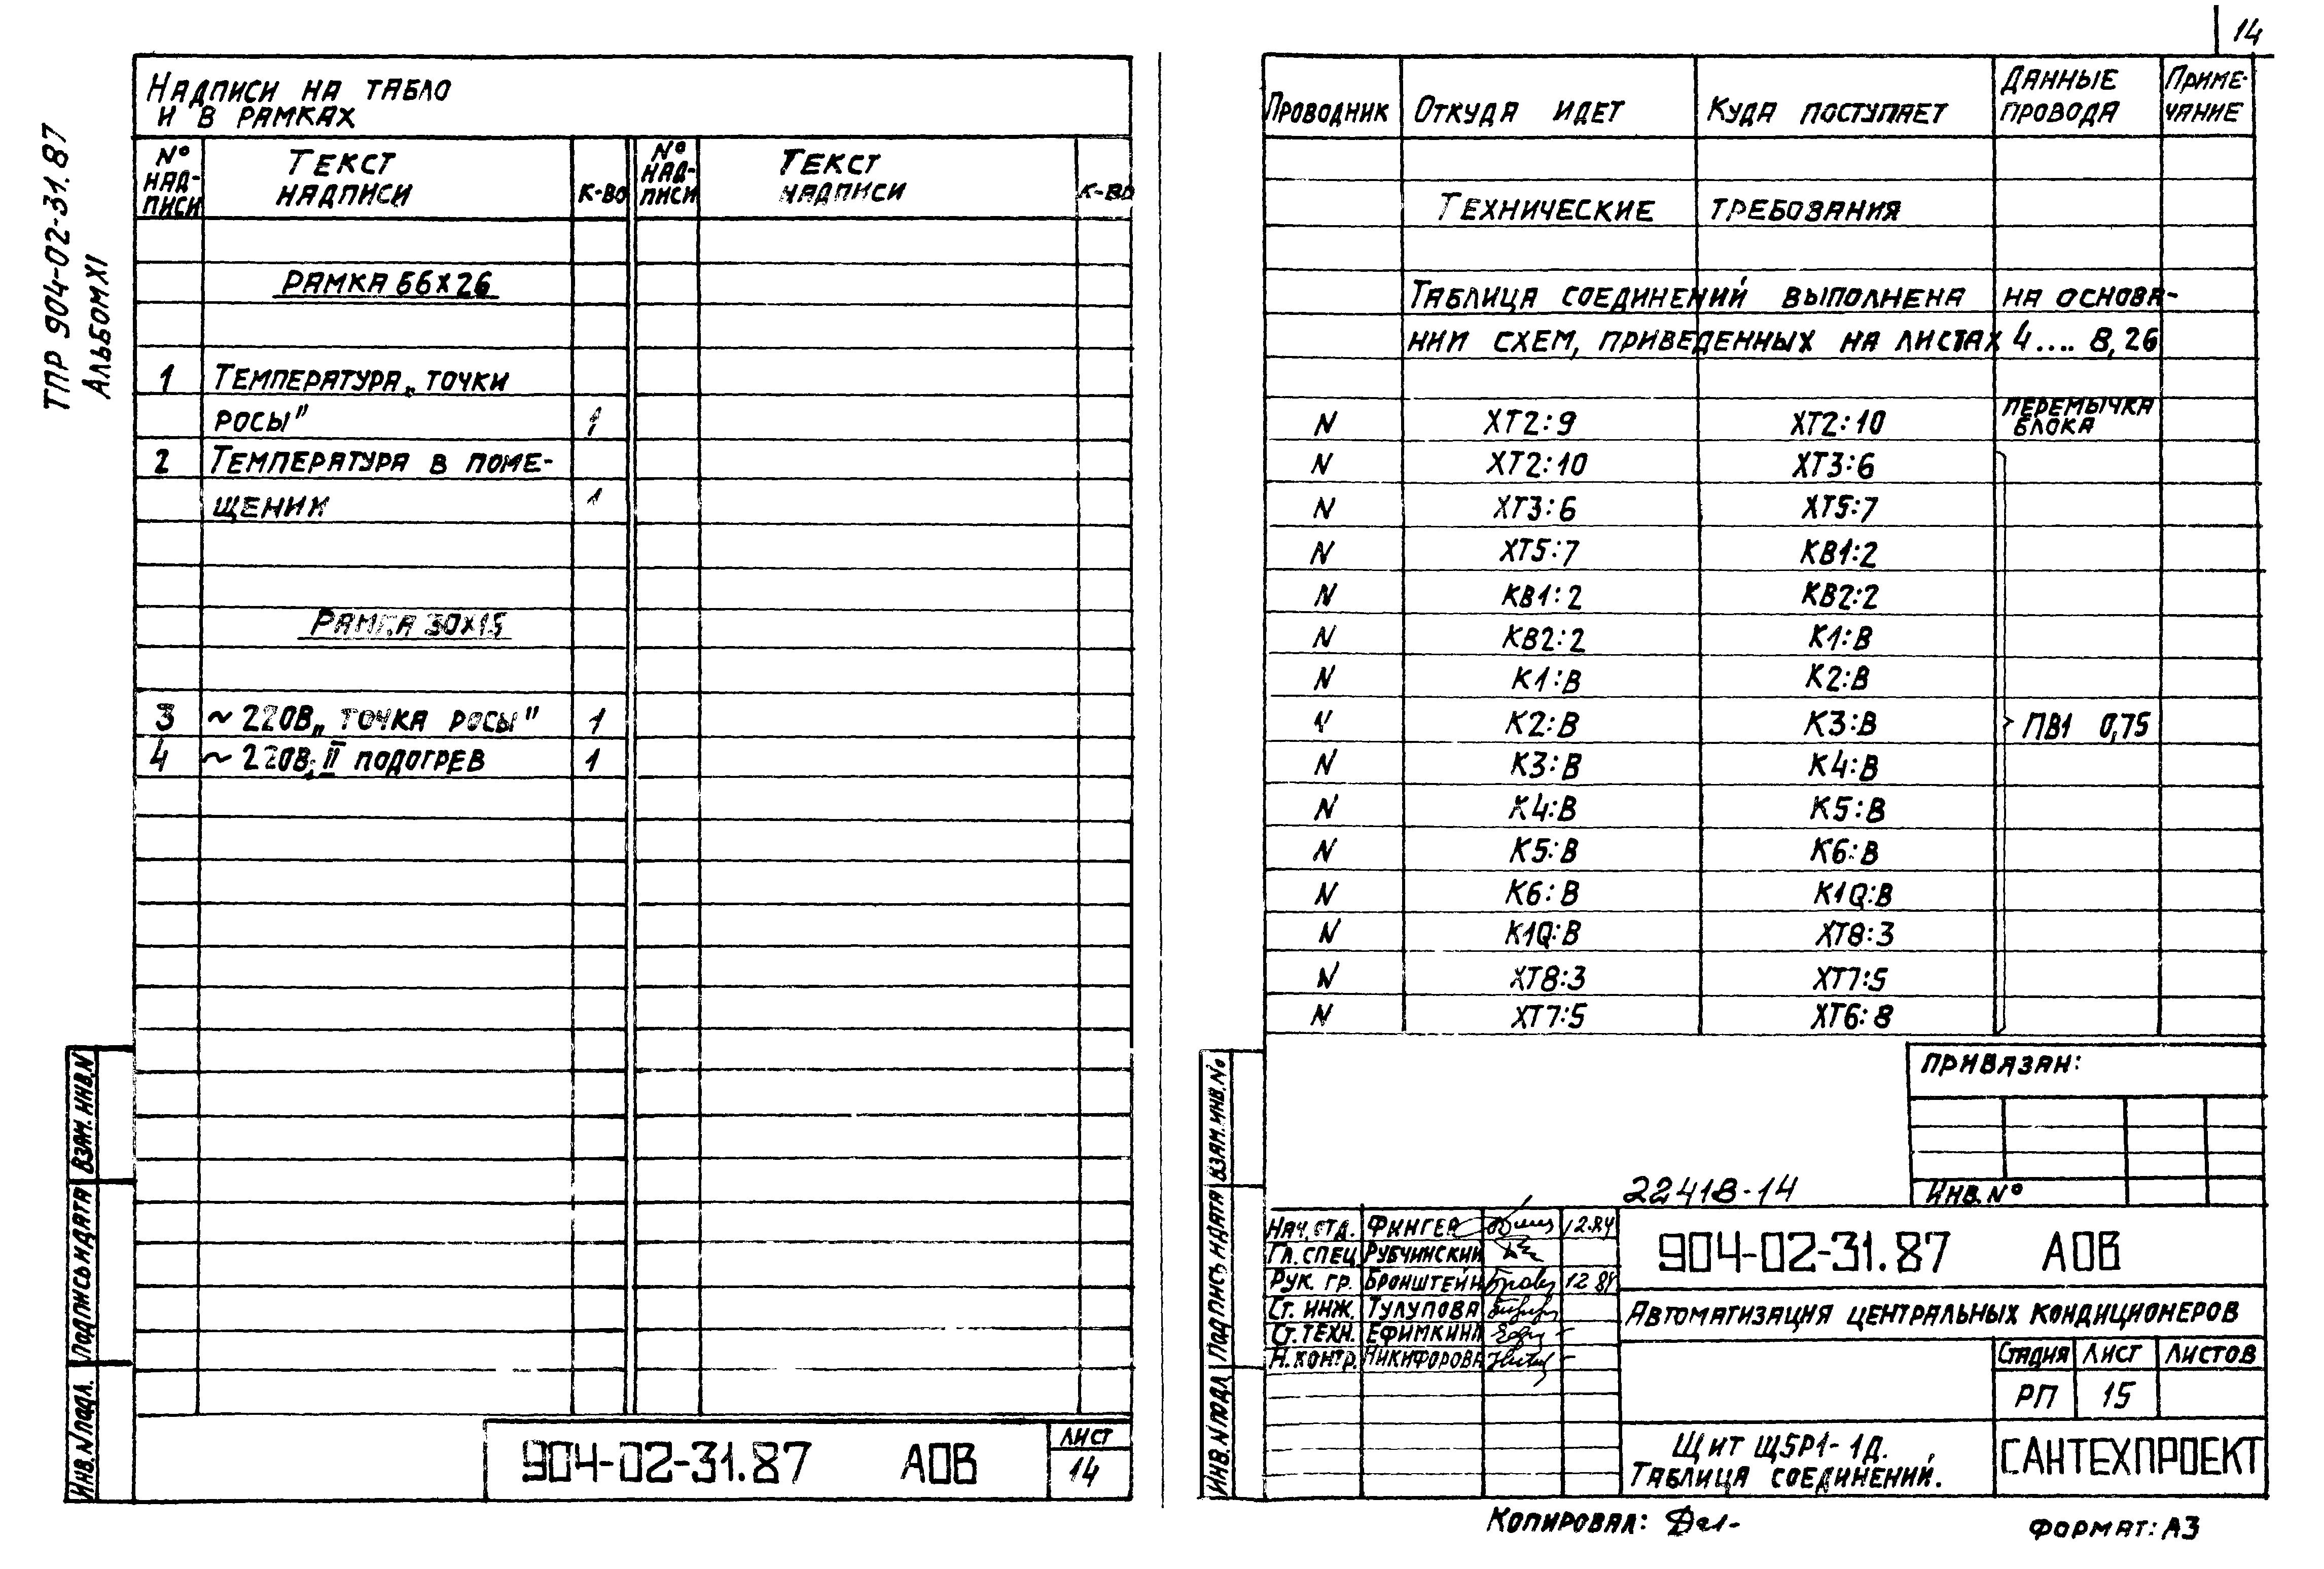 14
ТПР 904-02-31.87
Альбом XI
Надписи на табло
и в рамках
№ надписи Текст надписи к-во № надписи Текст надписи к-во
Рамка 66х26
1 Температура „точки
росы" 1
2 Температура в поме-
щении 1
Рамка 30х15
3 ~220В „точка росы" 1
4 ~220В, II подогрев 1
Взам. инв. N
Подпись и дата
Инв. N подл.
904-02-31.87 АОВ
Лист
14
Проводник Откуда идет Куда поступает Данные провода Приме-чание
Технические требования
Таблица соединений выполнена на основа-
нии схем, приведенных на листах 4 .... 8, 26
N ХТ2:9 ХТ2:10 перемычка блока
N ХТ2:10 ХТ3:6
N ХТ3:6 ХТ5:7
N ХТ5:7 КВ1:2
N КВ1:2 КВ2:2
N КВ2:2 К1:В
N К1:В К2:В
N К2:В К3:В ПВ1 0,75
N К3:В К4:В
N К4:В К5:В
N К5:В К6:В
N К6:В К1Q:В
N К1Q:В ХТ8:3
N ХТ8:3 ХТ7:5
N ХТ7:5 ХТ6:8
Привязан:
Инв. №
22418-14
Взам. инв. №
Подпись и дата
Инв. N подл
Нач. отд. Фингер 12.84
Гл. спец. Рубчинский
Рук. гр. Бронштейн 12 84
Ст. инж. Тулупова
Ст. техн. Ефимкина
Н. контр. Никифорова
904-02-31.87 АОВ
Автоматизация центральных кондиционеров
Стадия Лист Листов
РП 15
Щит Щ5Р1-1Д.
Таблица соединений.
САНТЕХПРОЕКТ
Копировал:
Формат: А3